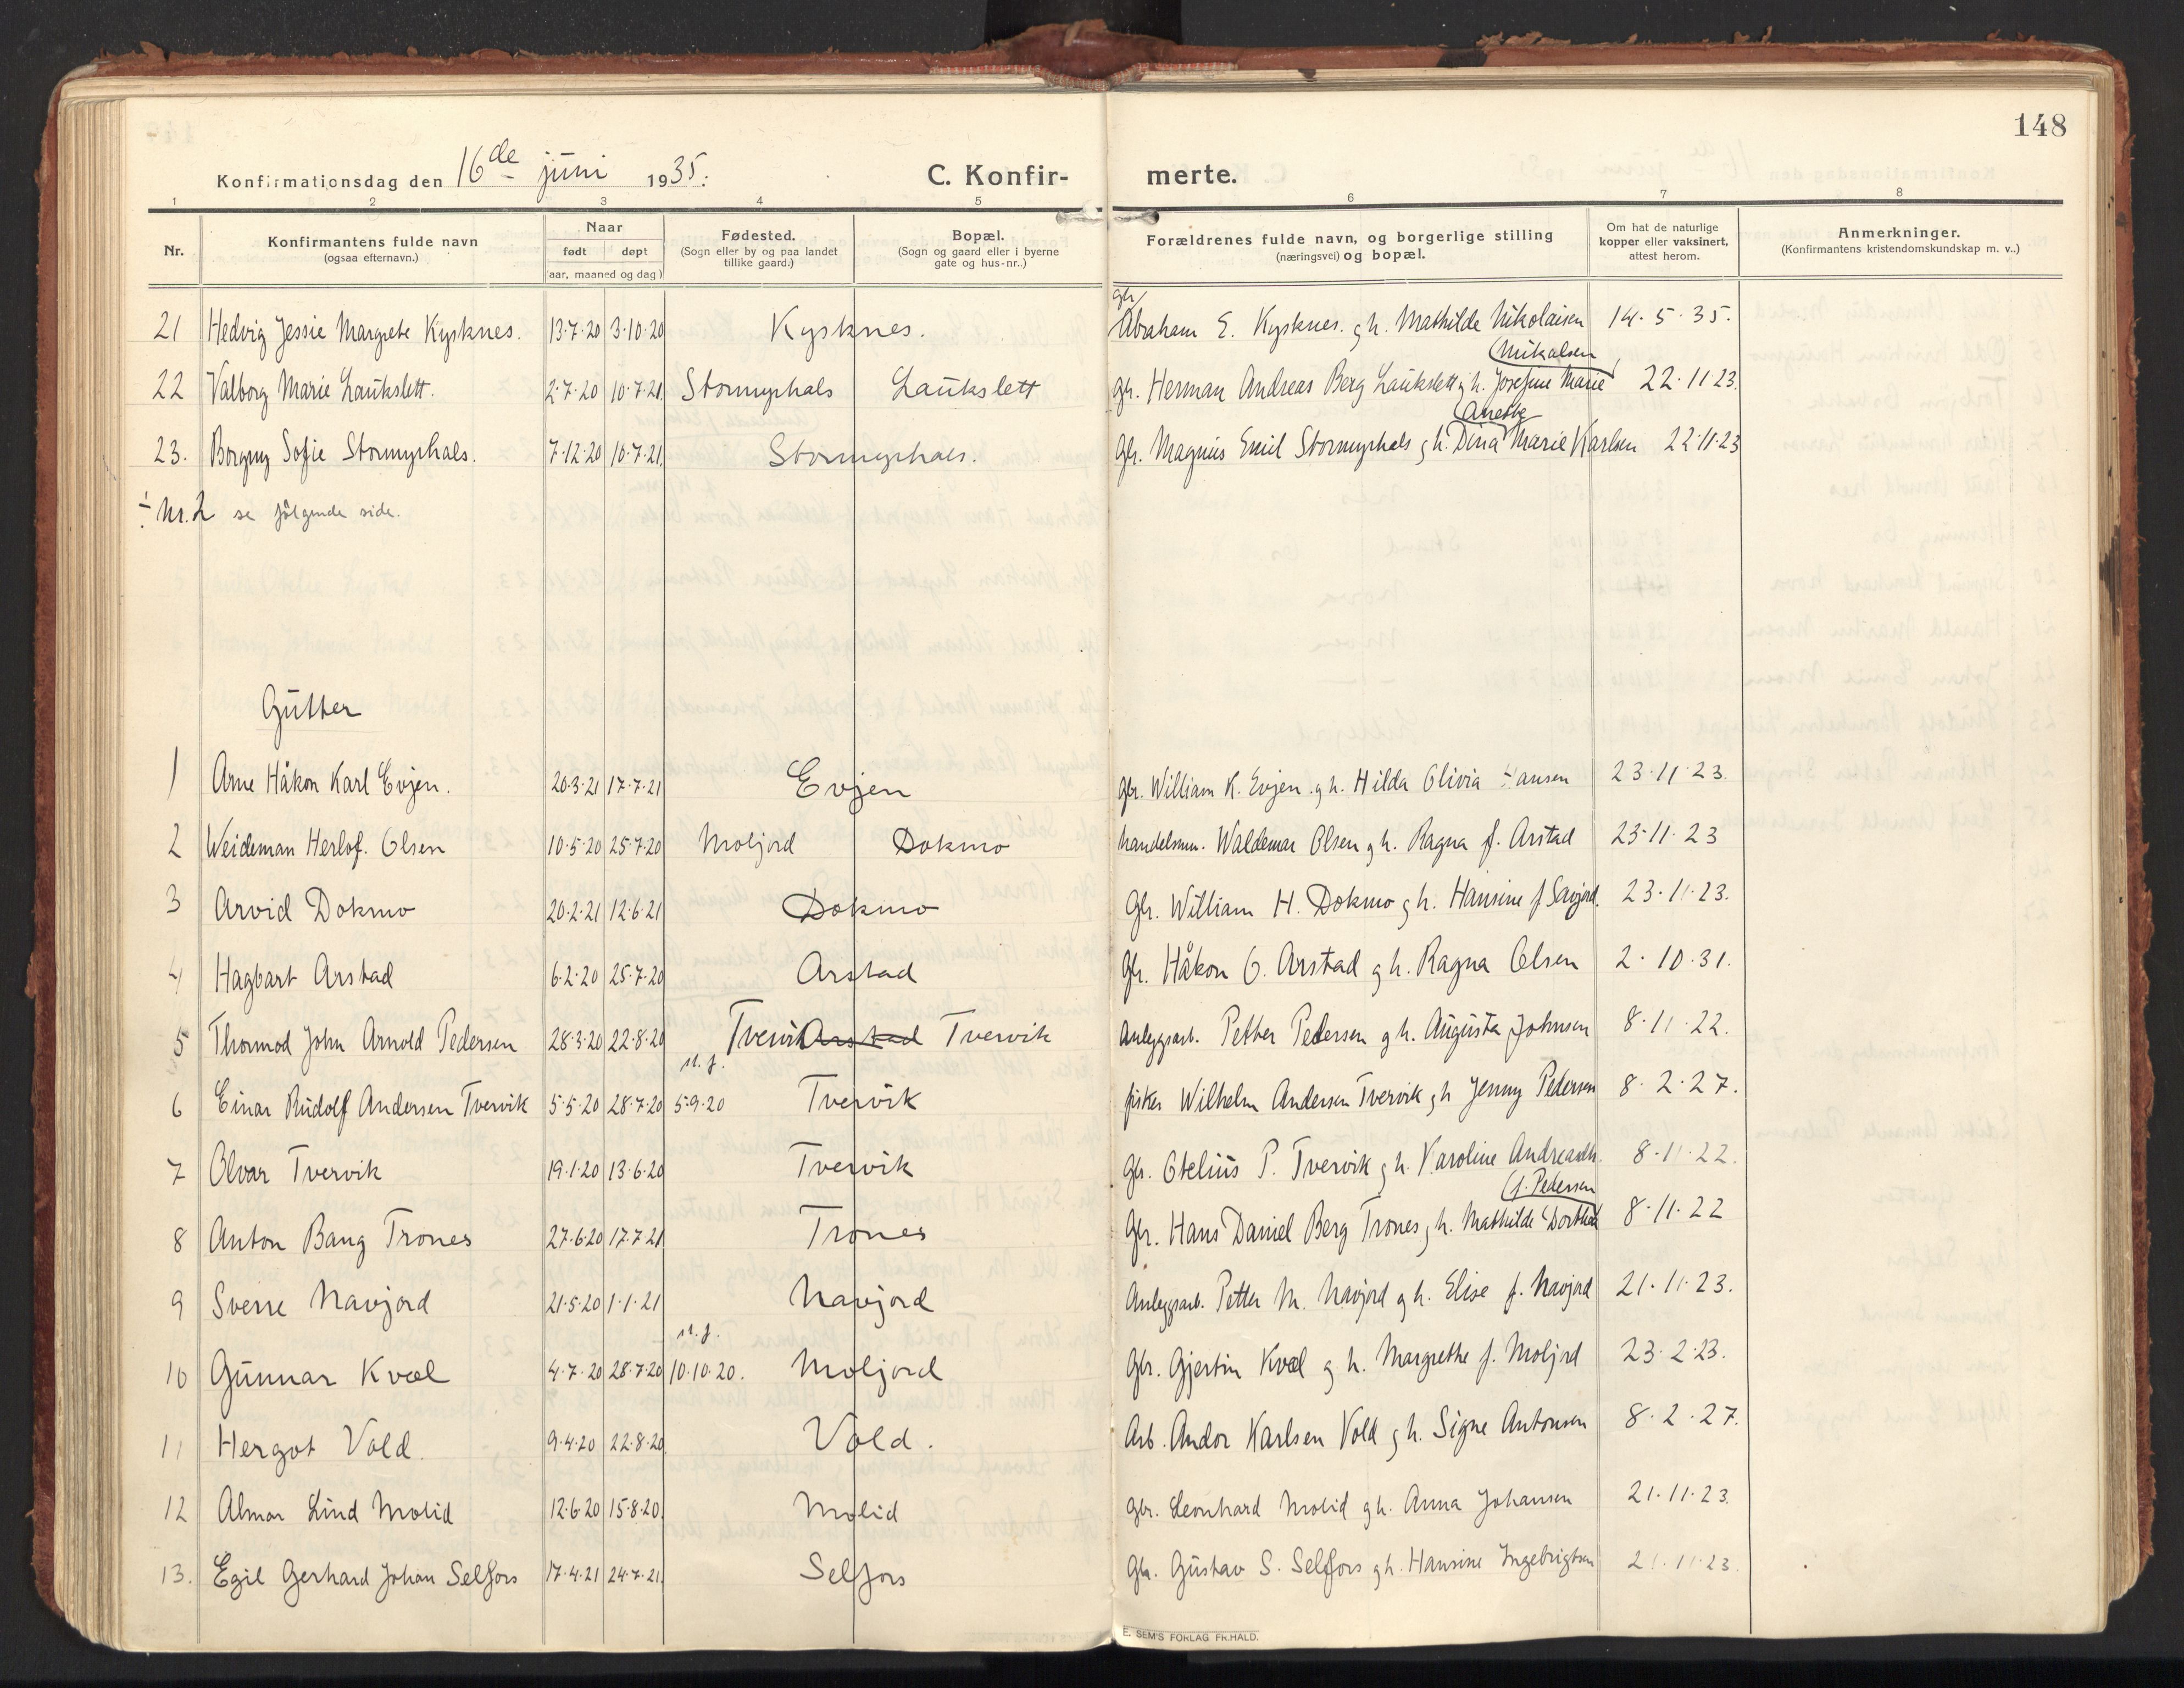 148
Konfirmationsdag den 16de juni 1935. C. Konfir- merte.
1 2 3 4 5 6 7 8
Nr. Konfirmantens fulde navn (ogsaa efternavn.) Naar født døpt (aar, maaned og dag) Fødested. (Sogn eller by og paa landet tillike gaard.) Bopæl. (Sogn og gaard eller i byerne gate og hus-nr.) Forældrenes fulde navn, og borgerlige stilling (næringsvei) og bopæl. Om hat de naturlige kopper eller vaksinert, attest herom. Anmerkninger. (Konfirmantens kristendomskundskap m. v..)
21 Hedvig Jessie Margrete Kysknes. 13·7·20 3·10·20 Kysknes. gbr Abraham E. Kysknes. g h. Mathilde Nikolaisen 14·5·35.
22 Valborg Marie Laukslett. 2·7·20 10·7·21 Stormyrhals Laukslett gbr. Herman Andreas Berg Laukslett g h. Josefine Marie (Nikalsen 22·11·23.
23. Borgny Sofie Stormyrhals. 7·12·20 10·7·21. Stormyrhals. gbr. Magnus Emil Stormyrhals g h. Dina (Anette Marie Karlsen 22·11·23
÷ Nr. 2 se følgende side.
Gutter
1 Arne Håkon Karl Evjen. 20·3·21 17·7·21 Evjen gbr. William K. Evjen. g h. Hilda Olivia Hansen 23·11·23.
2 Weideman Herlof. Olsen 10·5·20 25·7·20 Moljord Dokmo handelsm. Waldemar Olsen g h. Ragna f. Arstad 23·11·23
3 Arvid Dokmo 20·2·21 12·6·21 Dokmo Gbr. William H. Dokmo g h. Hansine f Savjord. 23·11·23.
4 Hagbart Arstad 6·2·20 25·7·20 Arstad Gbr. Håkon O. Arstad g h. Ragna Olsen 2·10·31.
5 Thormod John Arnold Pedersen 28·3·20 22·8·20 Tvervik Arstad Tvervik Anleggsarb. Petter Pedersen g h. Augusta Johnsen 8·11·22.
6 Einar Rudolf Andersen Tvervik 5·5·20 28·7·20 st. f. 5·9·20 Tvervik fisker Wilhelm Andersen Tvervik g h Jenny Pedersen 8·2·27.
7 Olvar Tvervik 19·1·20 13·6·20 Tvervik Gbr. Otelius P. Tvervik g h. Karoline Andreasdtr. 8·11·22.
8 Anton Bang Trones 27·6·20 17·7·21 Trones Gbr. Hans Daniel Berg Trones g h. Mathilde Dorthea (f. Pedersen 8·11·22
9 Sverre Navjord 21·5·20 1·1·21 Navjord Anleggsarb. Petter M. Navjord g h. Elise f. Navjord 21·11·23.
10 Gunnar Kvæl 4·7·20 28·7·20 st. f. 10·10·20. Moljord Gbr. Gjertin Kvæl g h. Margrethe f. Moljord 23·2·23.
11 Hergot Vold. 9·4·20 22·8·20 Vold. Arb. Andor Karlsen Vold g h. Signe Antonsen 8·2·27.
12 Almar Lind Molid 12·6·20 15·8·20. Molid gbr. Leonhard Molid g h. Anna Johansen 21·11·23.
13. Egil Gerhard Johan Selfors 17·4·21 24·7·21. Selfors Gbr. Gustav S. Selfors g h. Hansine Ingebrigtsen 21·11·23.
E. SEM'S FORLAG FR.HALD.